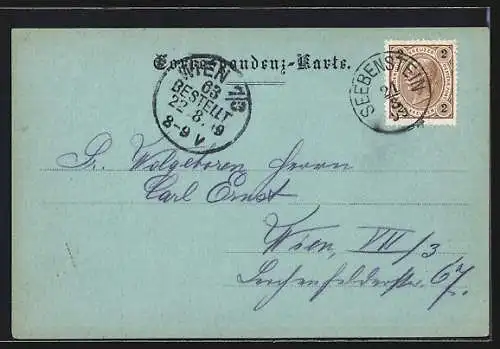 Correspondenz-Karte.
WIEN 1/3
63
BESTELLT
22. 8. 99
8-9 V
SEEBENSTEIN
21 8
2 2
Sr. Wolgeboren Herrn
Carl Ernst
Wien, VII/3
Lerchenfelderstr. 67